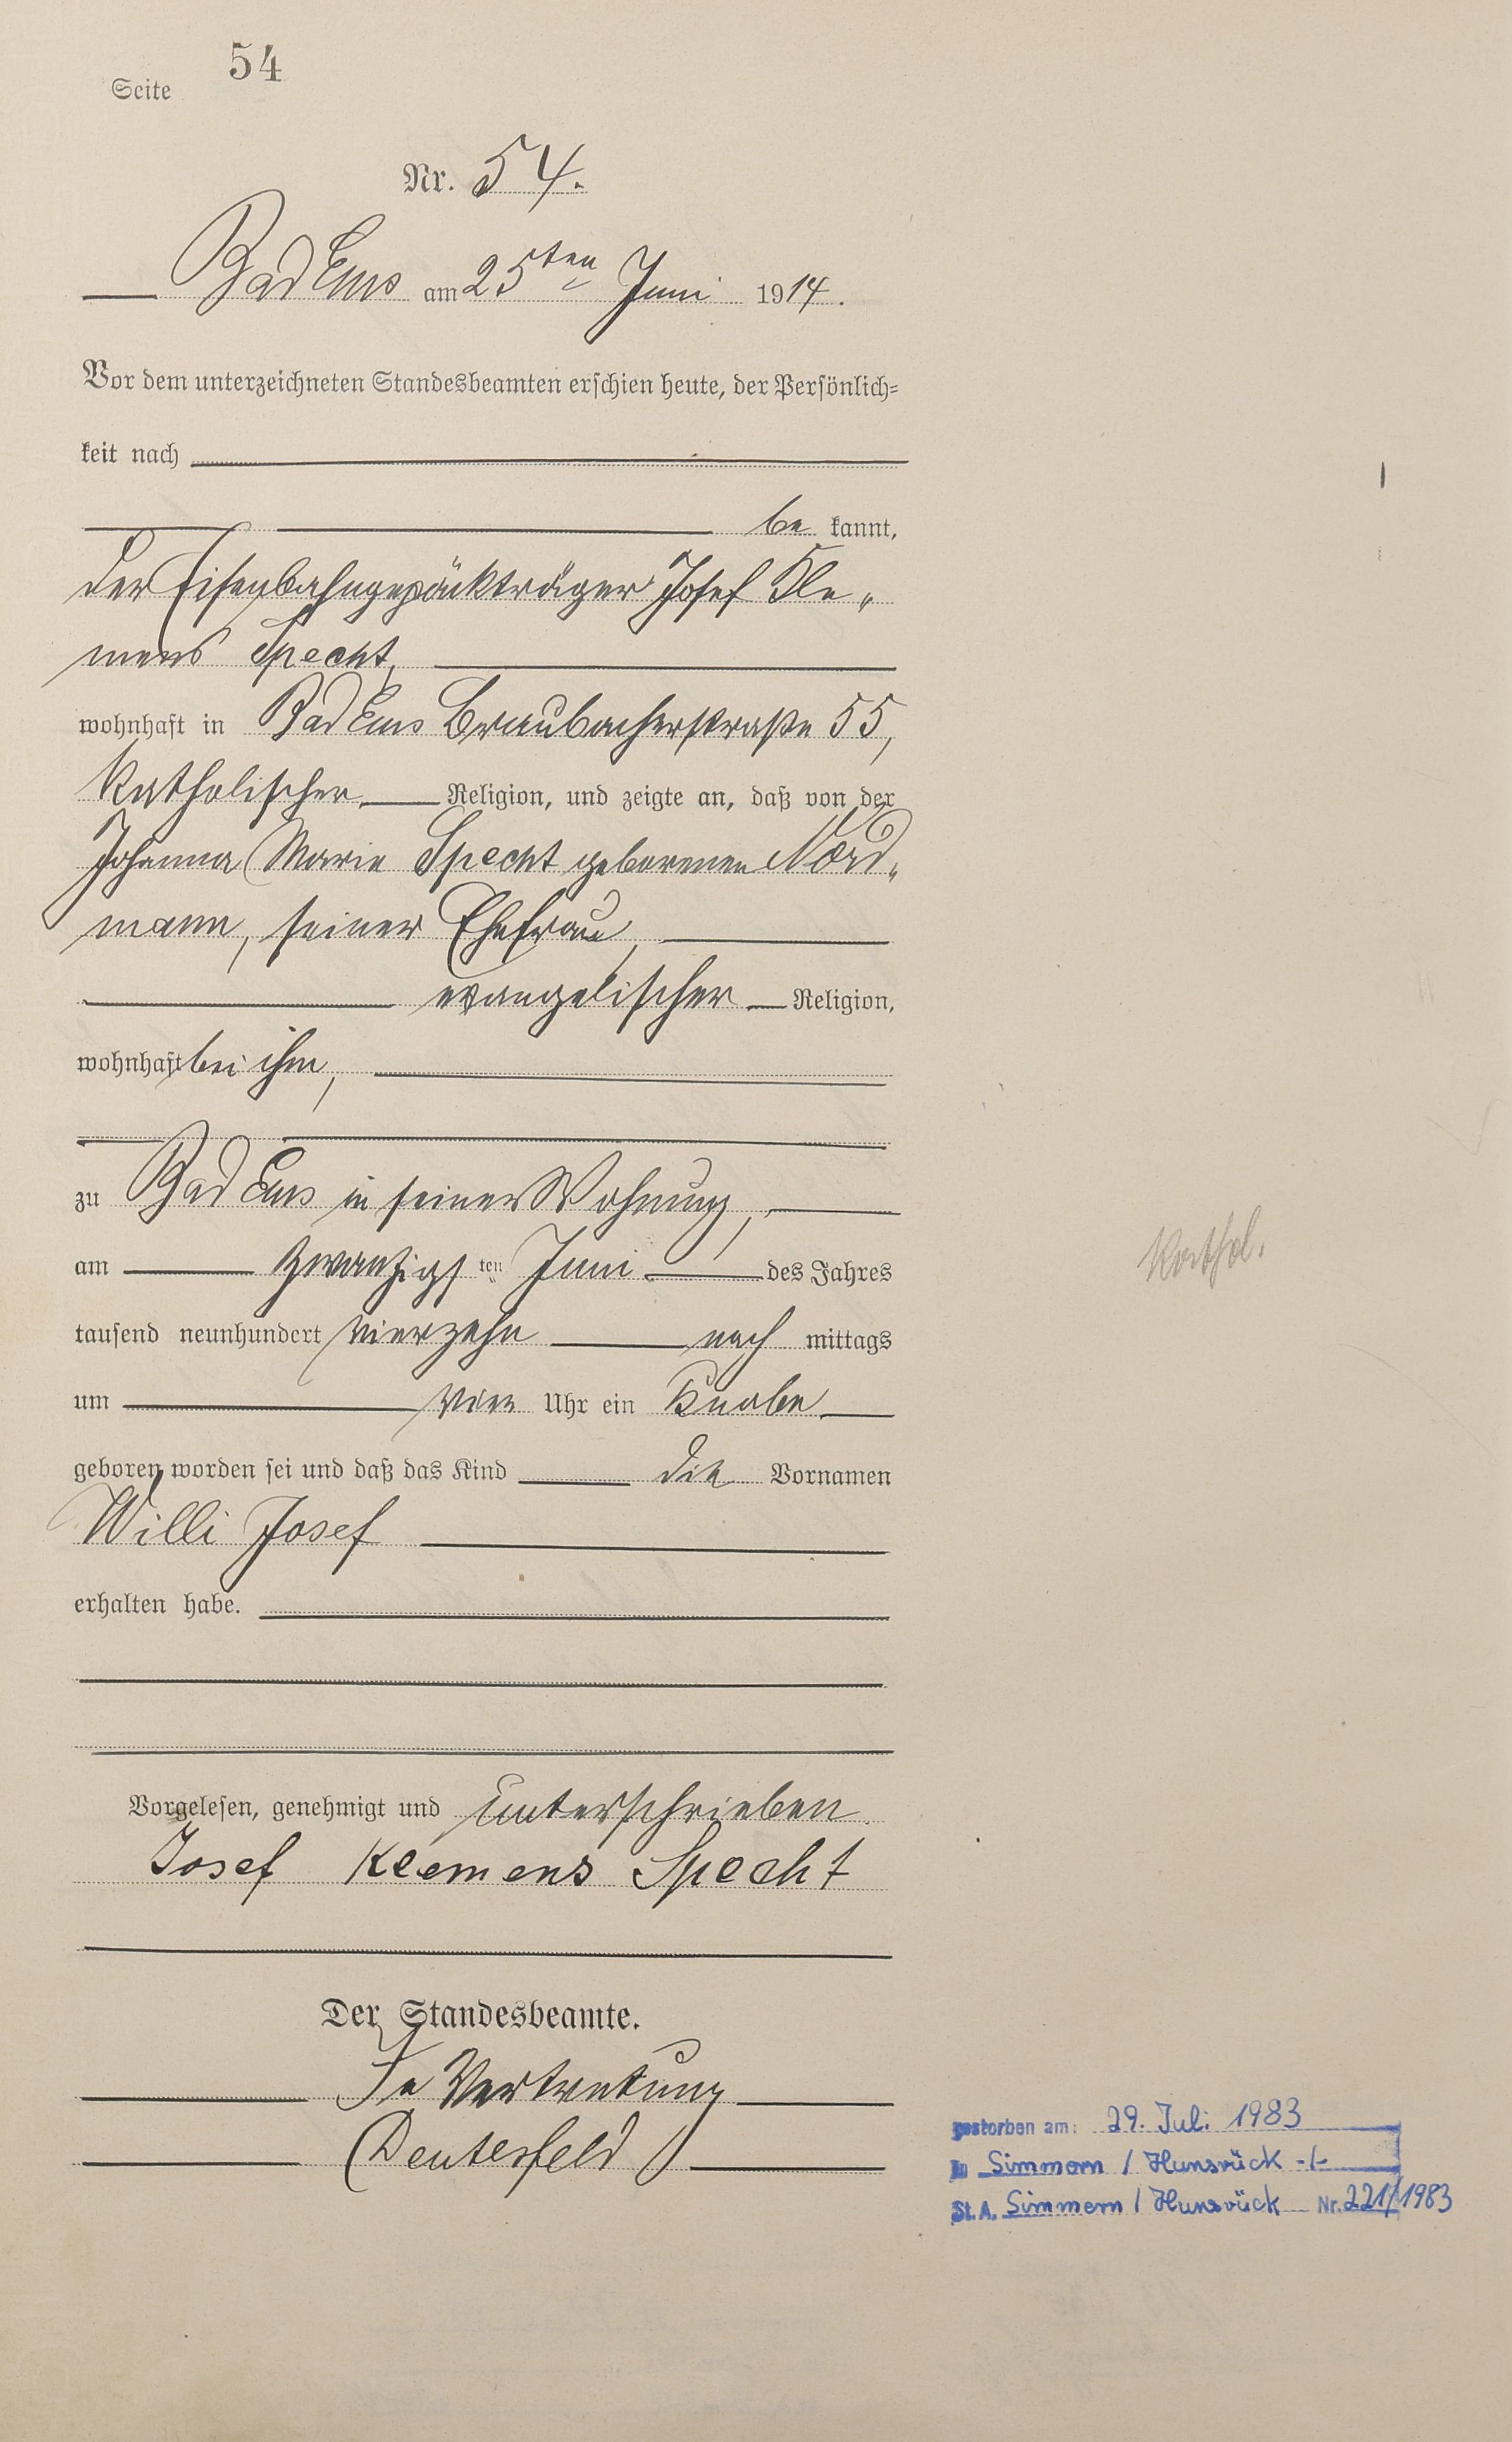 Seite 54
Nr. 54.
Bad Ems am 25ten Juni 1914.
Vor dem unterzeichneten Standesbeamten erschien heute, der Persönlich=
keit nach
be kannt,
der Eisenbahngepäckträger Josef Kle„
mens Specht,
wohnhaft in Bad Ems Braubacherstraße 55,
katholischer Religion, und zeigte an, daß von der
Johanna Marie Specht geborenen Nord„
mann, seiner Ehefrau,
evangelischer Religion,
wohnhaft bei ihm,
zu Bad Ems in seiner Wohnung,
am zwanzigsten Juni des Jahres
tausend neunhundert vierzehn nach mittags
um vier Uhr ein Knabe
geboren worden sei und daß das Kind die Vornamen
Willi Josef
erhalten habe.
Vorgelesen, genehmigt und unterschrieben.
Josef Klemens Specht
Der Standesbeamte.
In Vertretung
Deuterfeld
Kathol.
gestorben am: 29. Juli 1983
in Simmern / Hunsrück -/-
St. A. Simmern / Hunsrück Nr. 221/1983